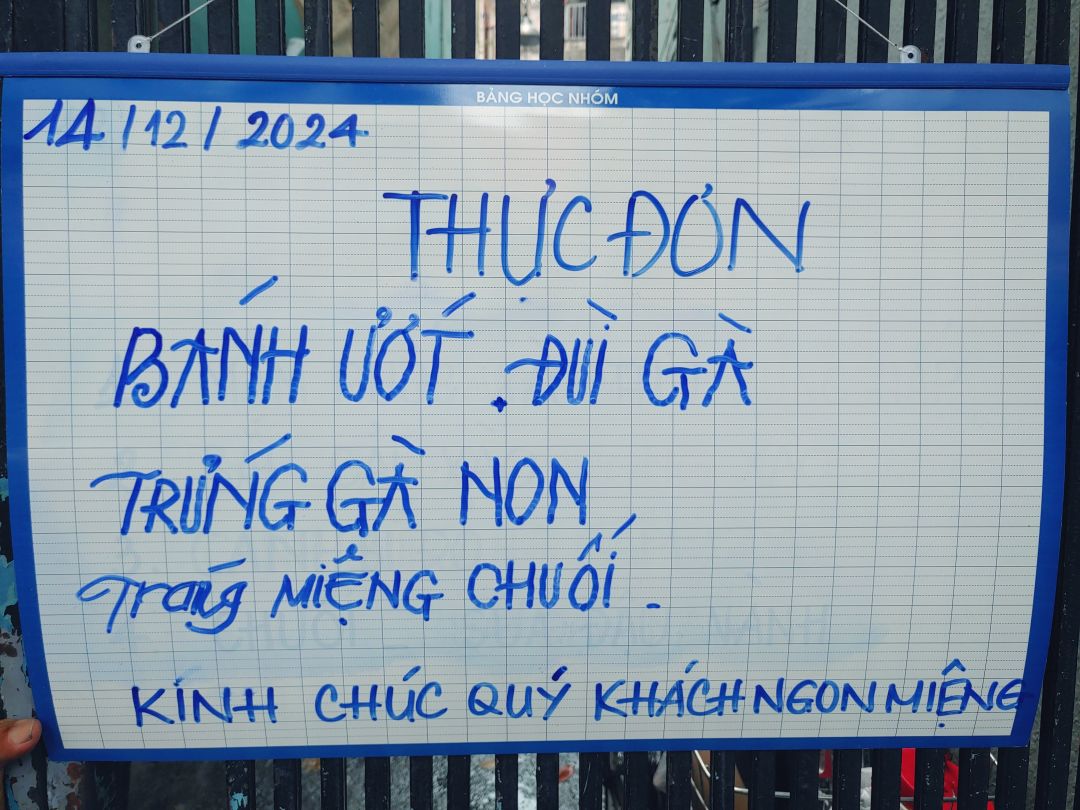 BẢNG HỌC NHÓM
14/12/2024
THỰC ĐƠN
BÁNH ƯỚT. ĐÙI GÀ
TRỨNG GÀ NON
Tráng MIỆNG CHUỐI.
KÍNH CHÚC QUÝ KHÁCH NGON MIỆNG